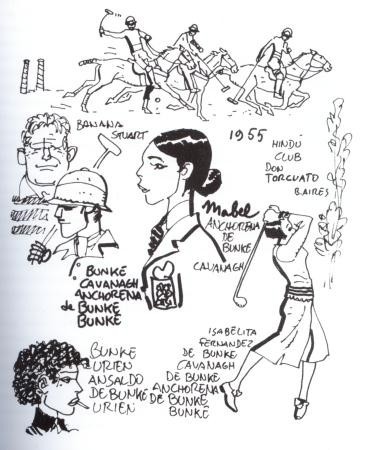 BANANA
STUART
1955
HINDÚ
CLUB
DON
TORCUATO
B.AIRES
Mabel
ANCHORENA
DE
BUNKE
CAVANAGH
BUNKE
CAVANAGH
ANCHORENA
de BUNKE
BUNKE
ISABELITA
FERNANDEZ
DE BUNKE
CAVANAGH
DE BUNKE
ANCHORENA
DE BUNKE
BUNKE
BUNKE
URIEN
ANSALDO
DE BUNKE
URIEN